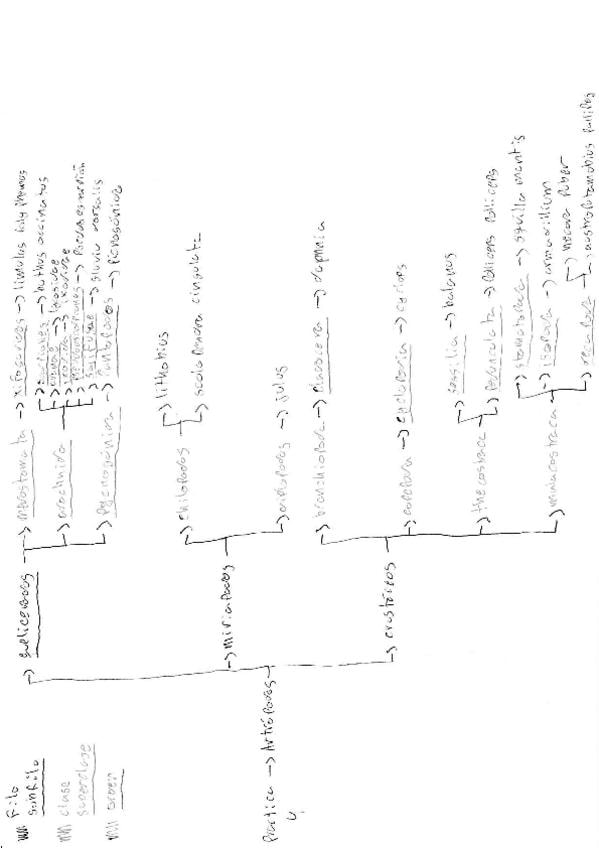 Filo
subfilo
clase
superclase
orden
Practica → Artrópodos
4
→ quelicerados → merostomata → xifosuros → limulus polyphemus
→ arachnida → scorpiones → buthus occinatus
→ pseudoscorpiones
→ solifugae → gluvia dorsalis
→ Pycnogónida → pantópodos → Picnogónidos
→ miriapodos → chilopodos → lithobius
→ scolopendra cingulata
→ diplopodos → julus
→ crustáceos → branchiopoda → cladocera → daphnia
→ copepoda → cyclopoida → cyclops
→ thecostraca → sessilia → balanus
→ pedunculata → pollicipes pollicipes
→ malacostraca → stomatopoda → squilla mantis
→ isopoda → armadillium
→ decapoda → necora puber
→ austropotamobius pallipes